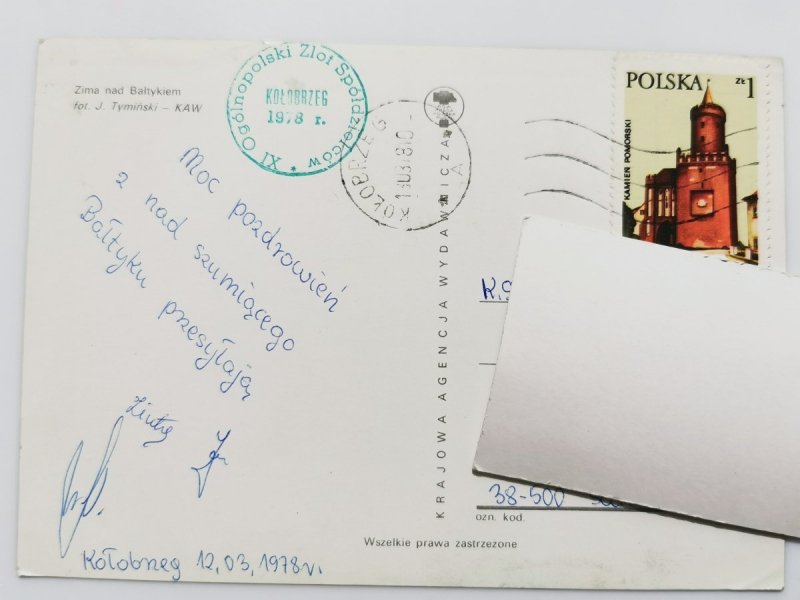 Zima nad Bałtykiem
fot. J. Tymiński – KAW
XI Ogólnopolski Zlot Spółdzielców *
KOŁOBRZEG
1978 r.
KOŁOBRZEG
A
POLSKA zł 1
KAMIEŃ POMORSKI
Moc pozdrowień
z nad szumiącego
Bałtyku przesyłają
Kołobrzeg 12,03,1978r.
KRAJOWA AGENCJA WYDAWNICZA
K.
38-500
ozn. kod.
Wszelkie prawa zastrzeżone